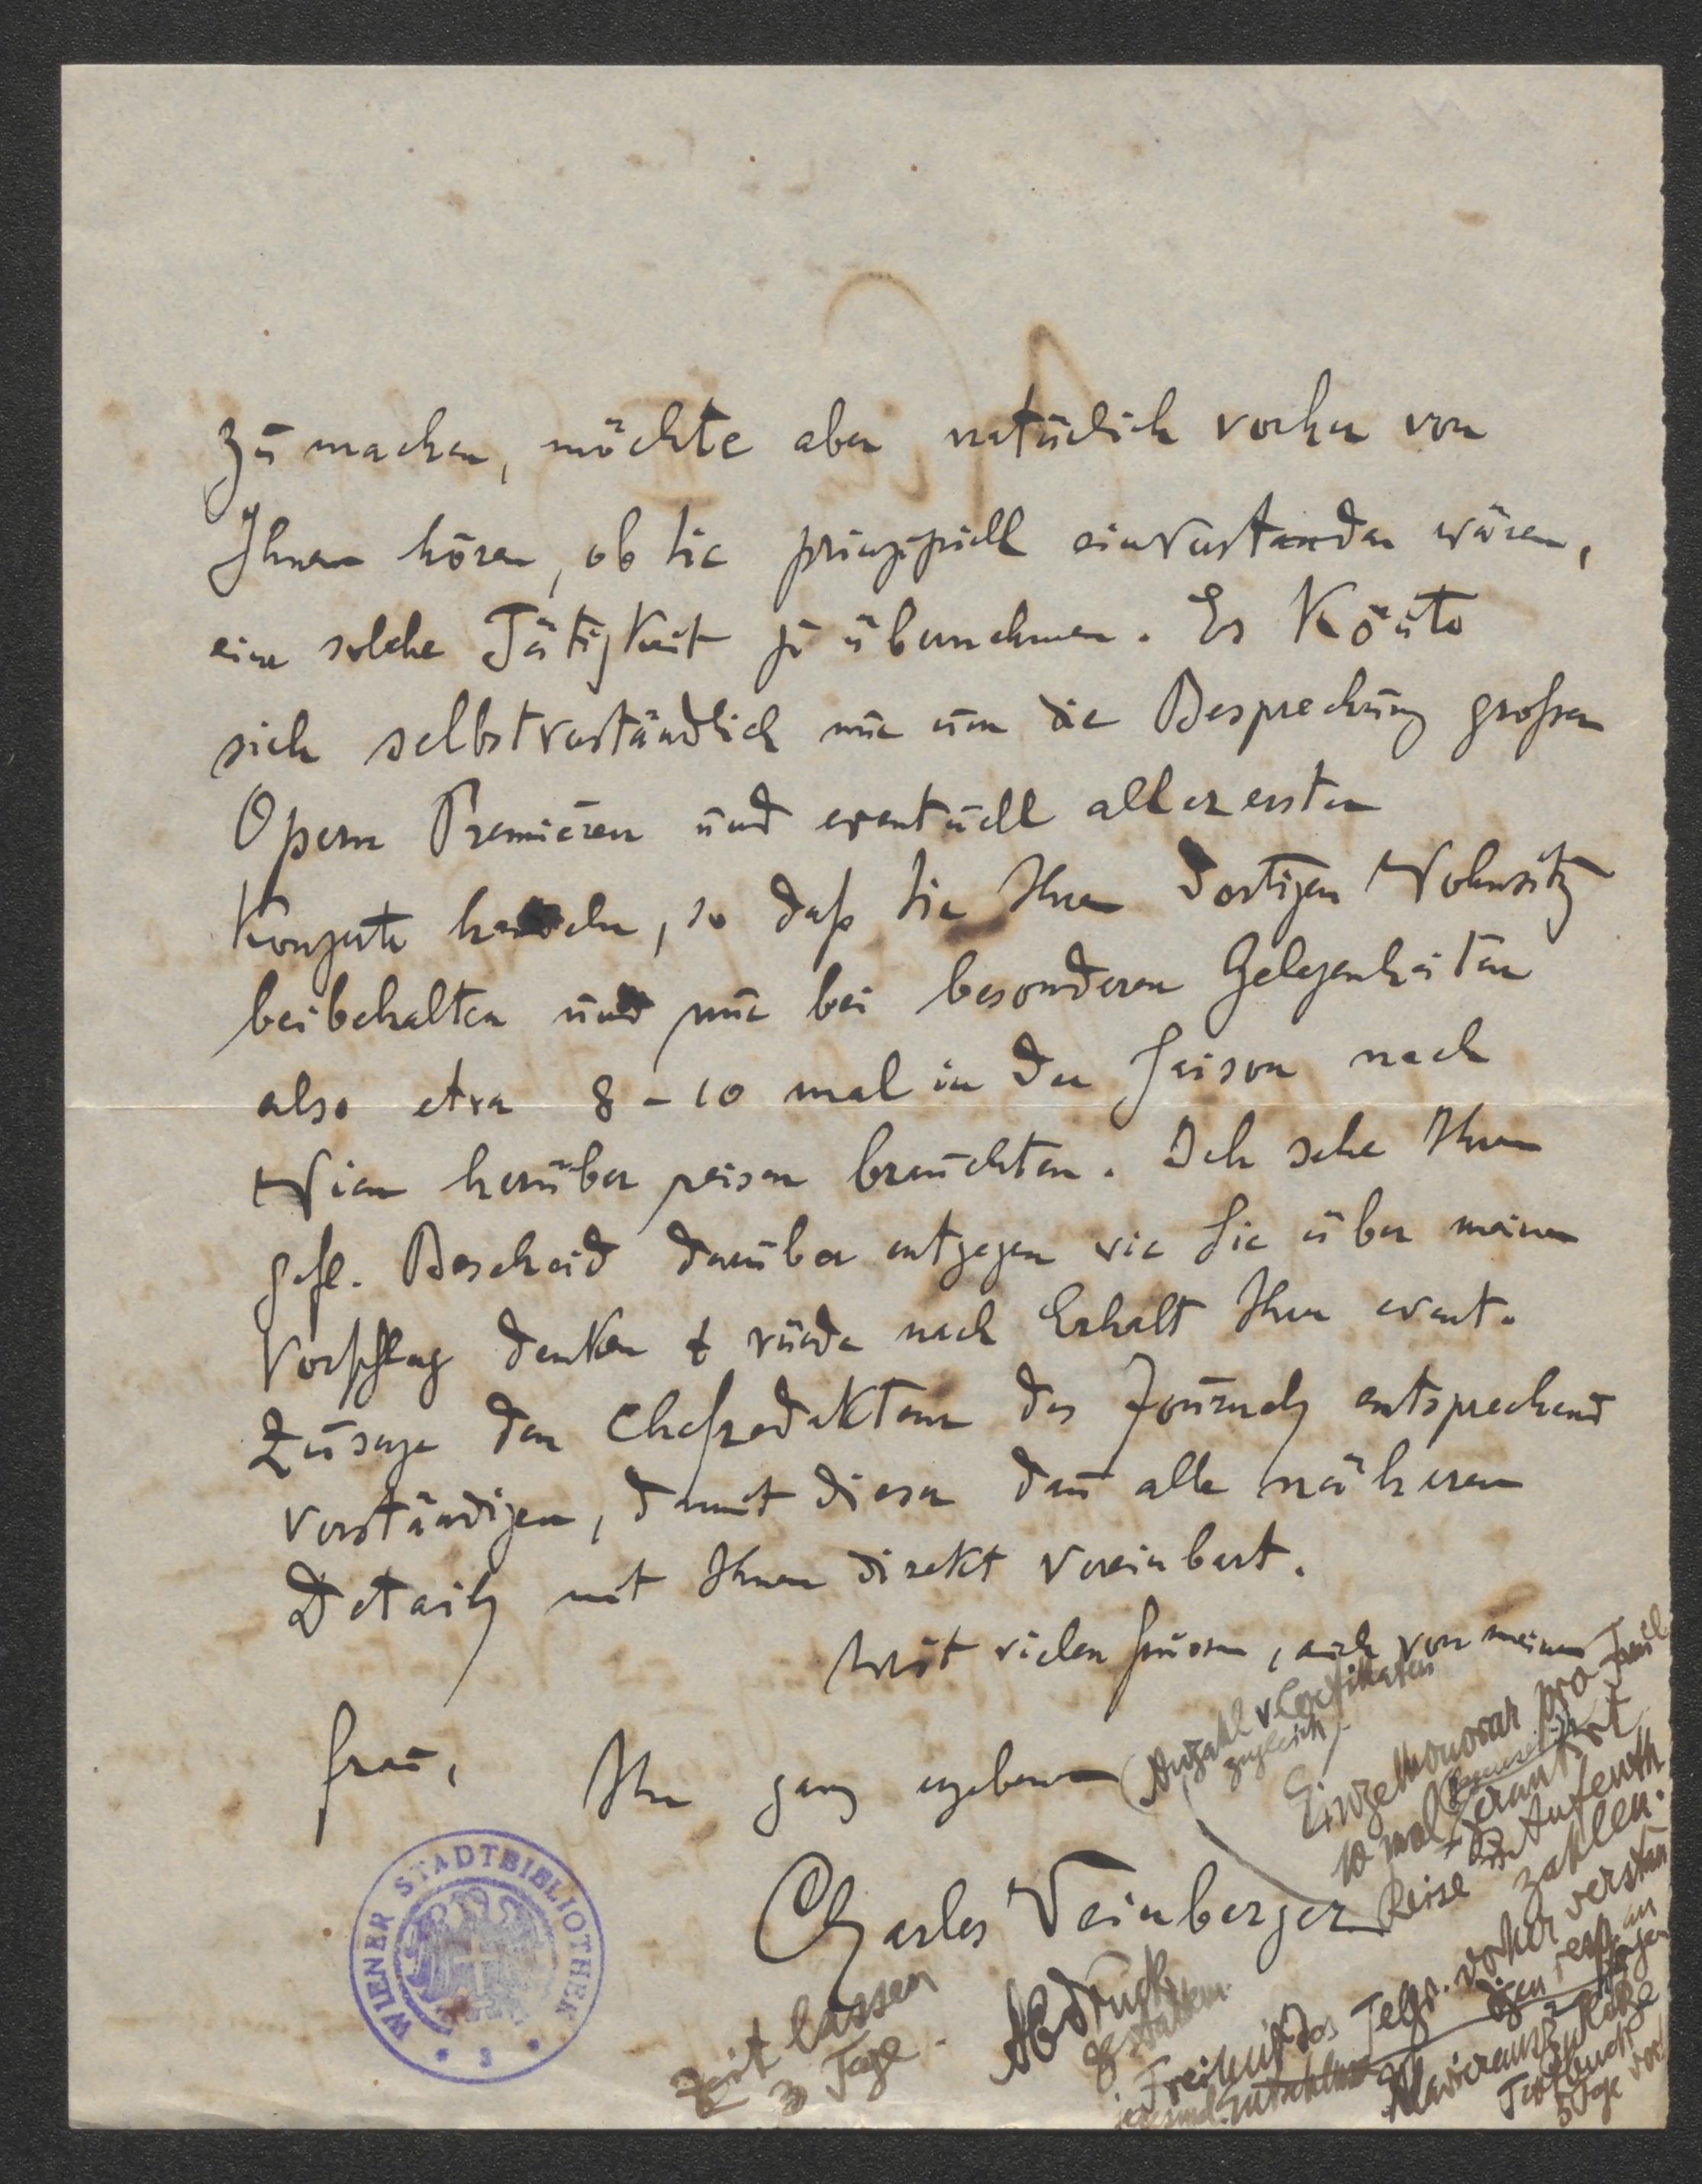 zu machen, möchte aber natürlich vorher von
Ihnen hören, ob Sie prinzipiell einverstanden wären,
eine solche Tätigkeit zu übernehmen. Es könnte
sich selbstverständlich nur um die Besprechung großer
Opern Premièren und eventuell allerersten
Konzerte handeln, so daß Sie Ihren dortigen Wohnsitz
beibehalten und nur bei besonderen Gelegenheiten
also etwa 8-10 mal in der Saison nach
Wien herüber reisen brauchten. Ich sehe Ihrem
gefl. Bescheid darüber entgegen wie Sie über meinen
Vorschlag denken & würde nach Erhalt Ihrer event.
Zusage den Chefredakteur des Journals entsprechend
verständigen, damit dieser dann alle näheren
Details mit Ihnen direkt vereinbart.
Mit vielen Grüssen, auch von meiner
Frau,
Ihr ganz ergebener
Charles Weinberger
Anzahl v Certifikaten
zugleich
Einzelhonorar pro
10 mal garantirt
Reise Aufenth
zahlen.
Zeit lassen
3 Tage
Abdruck
gestatten
Telgr. vorher verstän
digen resp an
fragen
Klavierauszu
Textbuch
5 Tage vor
WIENER STADTBIBLIOTHEK
* 3 *